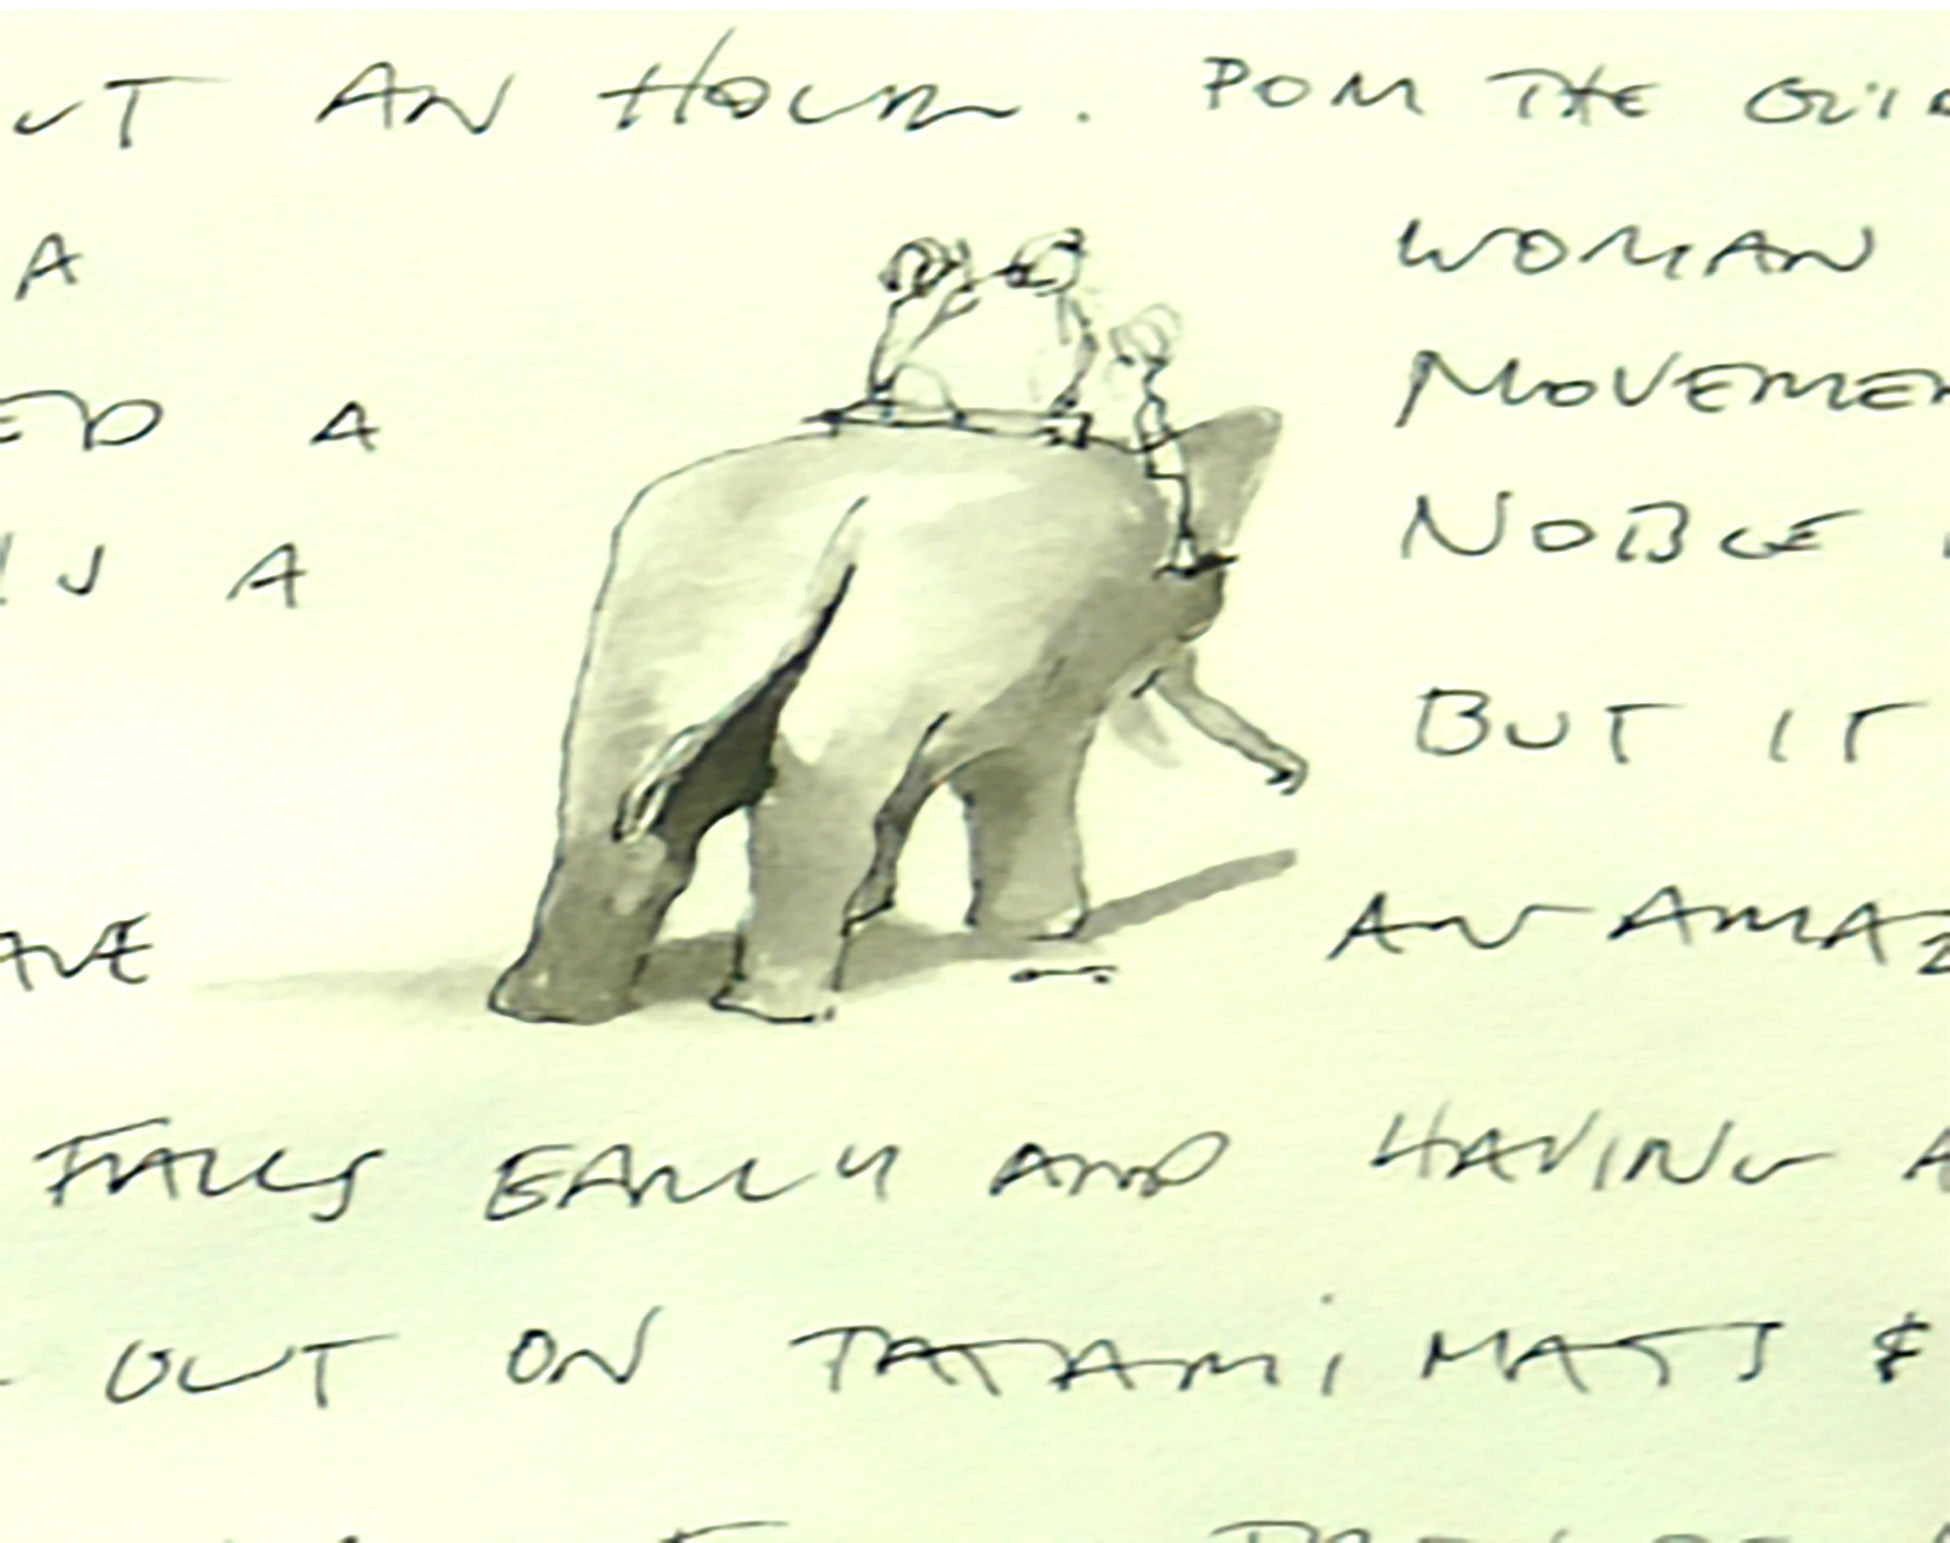 UT AN HOUR. POM THE GUID
A WOMAN
ED A MOVEMEN
A NOBLE
BUT IT
AVE AN AMAZ
FALLS EARLY AND HAVING A
OUT ON TATAMI MATS &